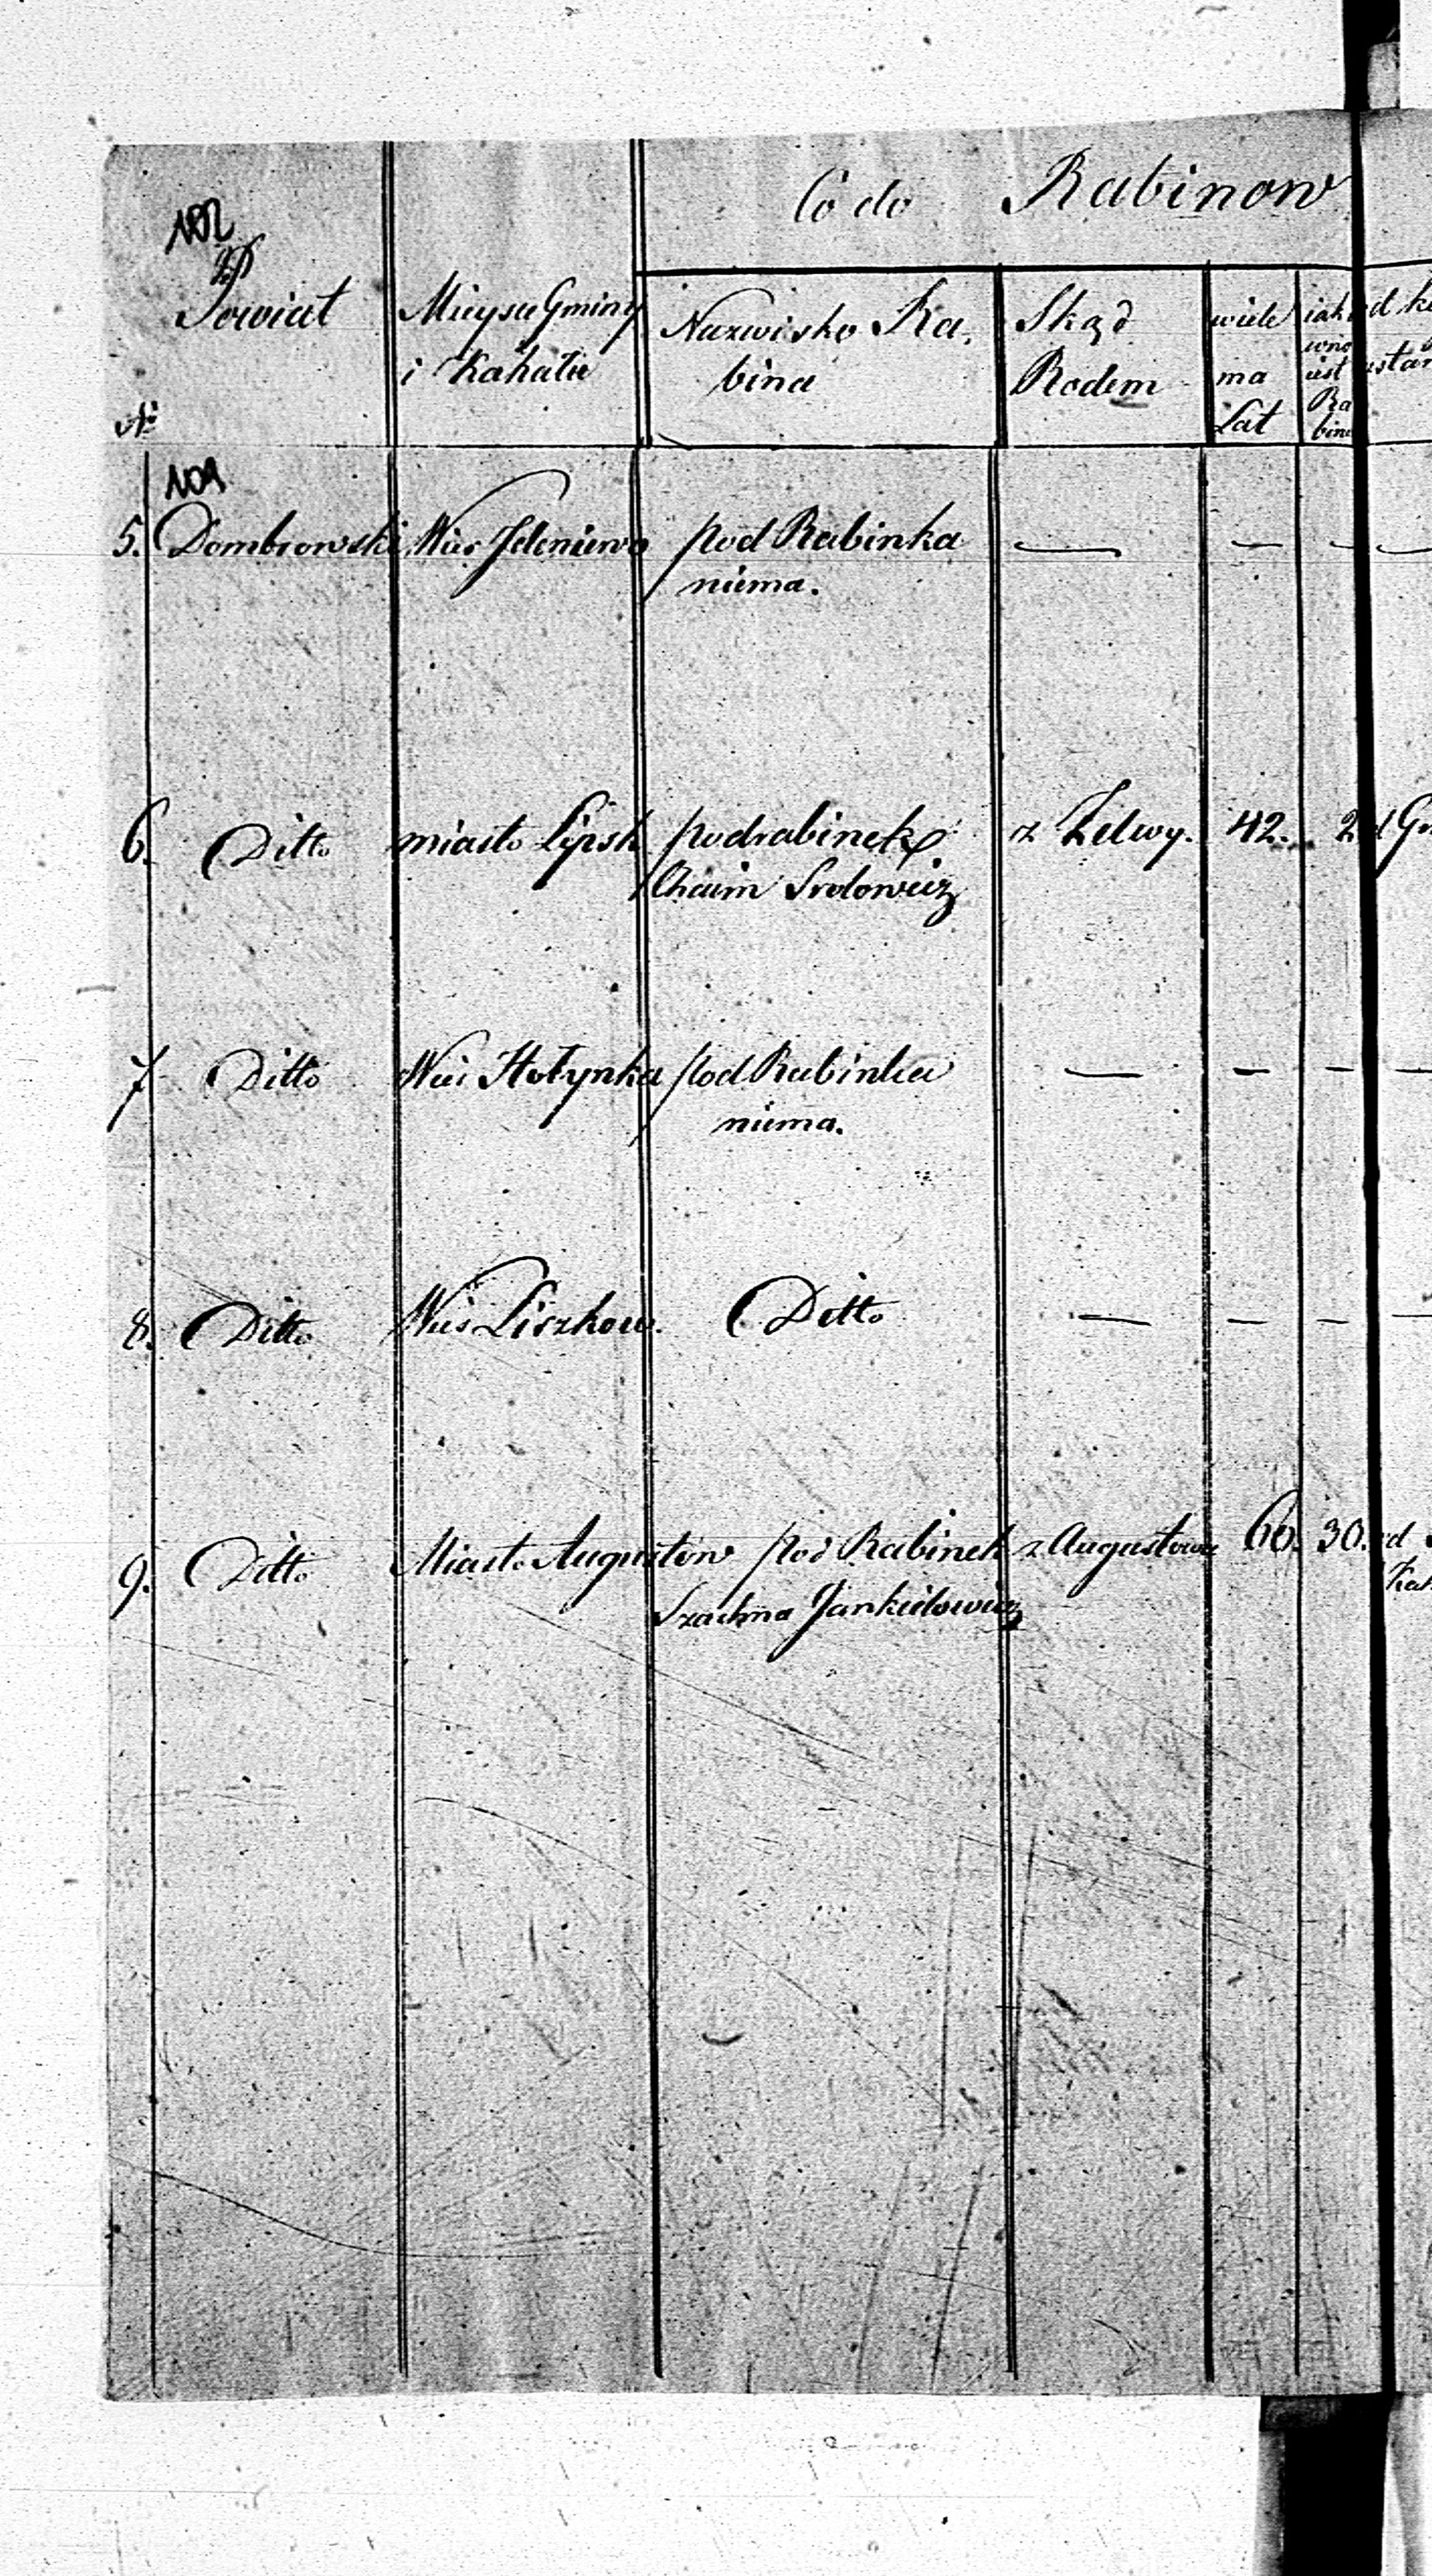 Co do Rabinow
102
Powiat
Mieysce Gminy
i Kahału
Nazwisko Ra.
bina
Skąd
Rodem
wiele
ma
Lat
iak
wno
iest
Ra
bine
od k
ustan
No
109
5. Dombrowski Wieś Jeleniewo pod Rabinka — — — —
niema.
6. Ditto miasto Lipsk podrabinek z Zelwy. 42. 2 d Gm
Chaim Srolowicz
7 Ditto Wieś Hołynka pod Rabinka — — — —
niema.
8. Ditto Wieś Liszkow. Ditto — — — —
9. Ditto Miasto Augustow pod Rabinek z Augustowa 60. 30. od
Szachna Jankielowicz Kah